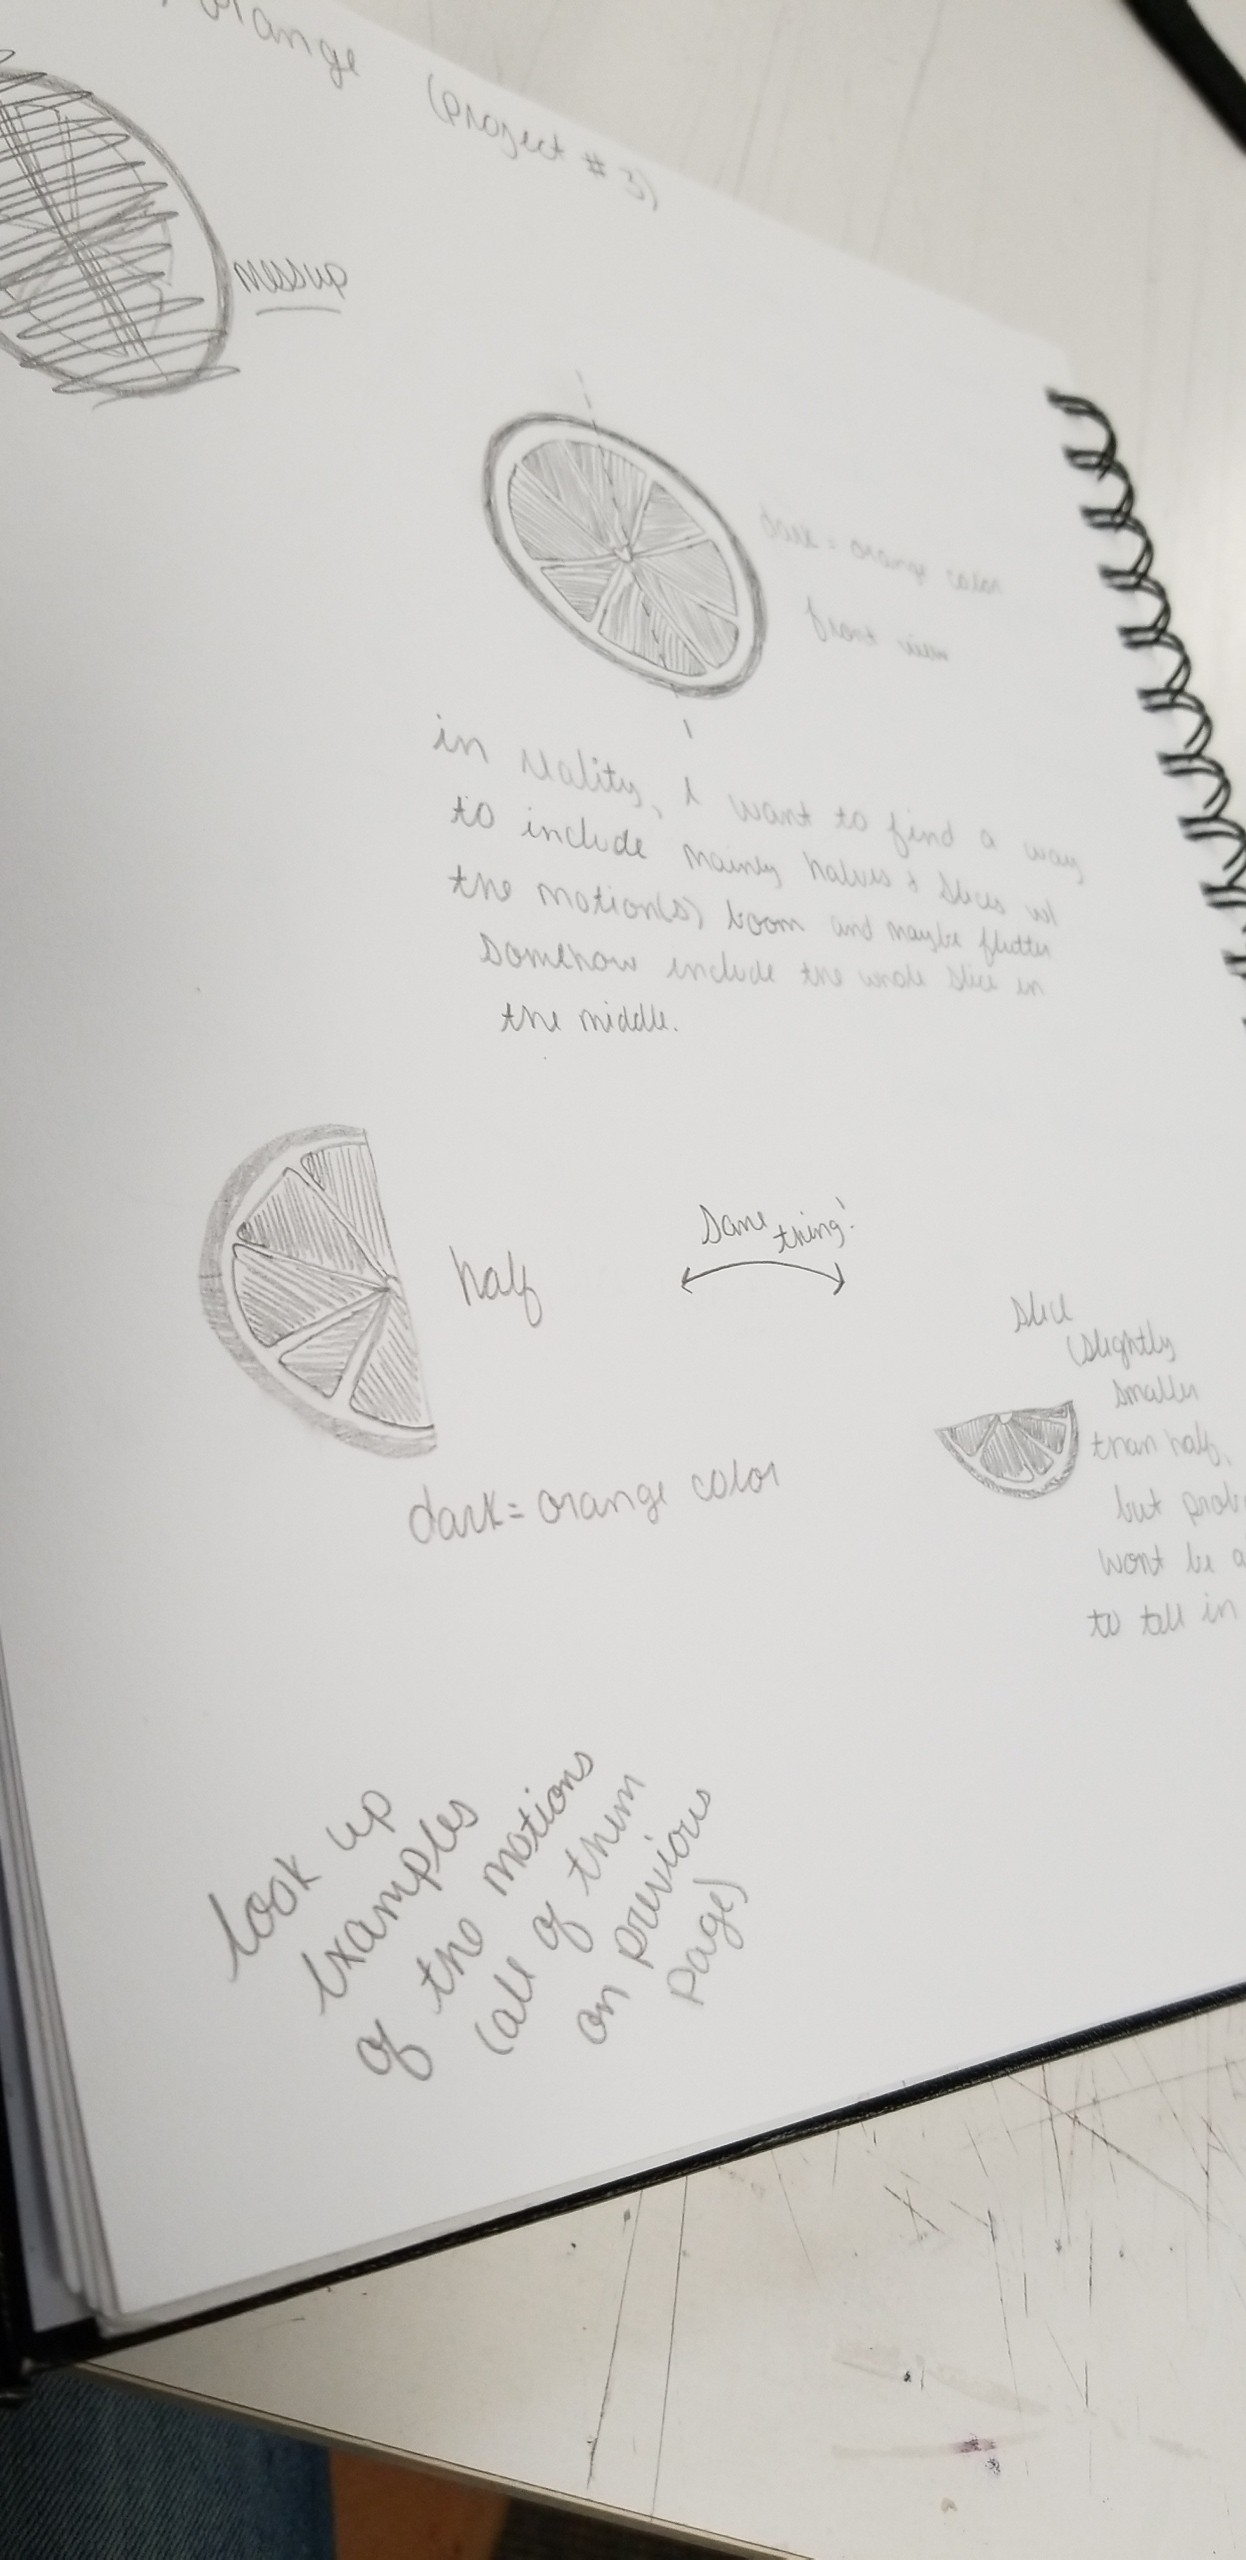 orange (project #3)
messup
dark = orange color
front view
in reality, I want to find a way
to include mainly halves & slices w/
the motion(s) boom and maybe flutter
somehow include the whole slice in
the middle.
half
same
thing!
slice
(slightly
smaller
than half,
but
wont be
to tell in
dark = orange color
look up
examples
of the motions
(all of them
on previous
page)